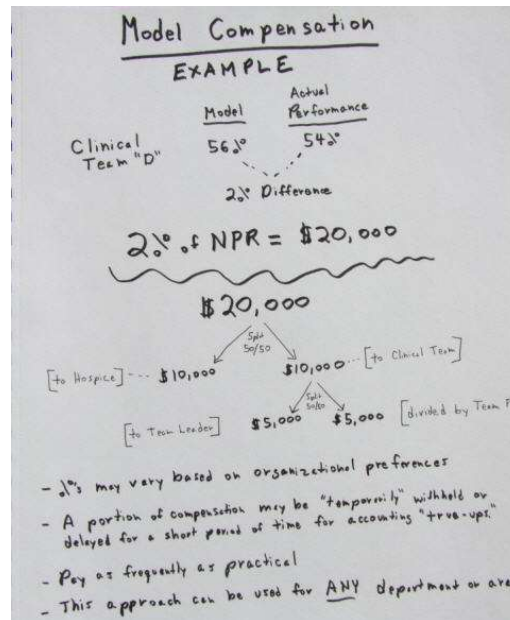 Model Compensation
EXAMPLE
Model
Actual
Performance
Clinical
Team "D"
56%
54%
2% Difference
2% of NPR = $20,000
$20,000
Split
50/50
[to Hospice] --- $10,000
$10,000 --- [to Clinical Team]
Split
50/50
[to Team Leader] $5,000 $5,000 [divided by Team
- %'s may vary based on organizational preferences
- A portion of compensation may be "temporarily" withheld or
delayed for a short period of time for accounting "true-ups."
- Pay as frequently as practical
- This approach can be used for ANY department or